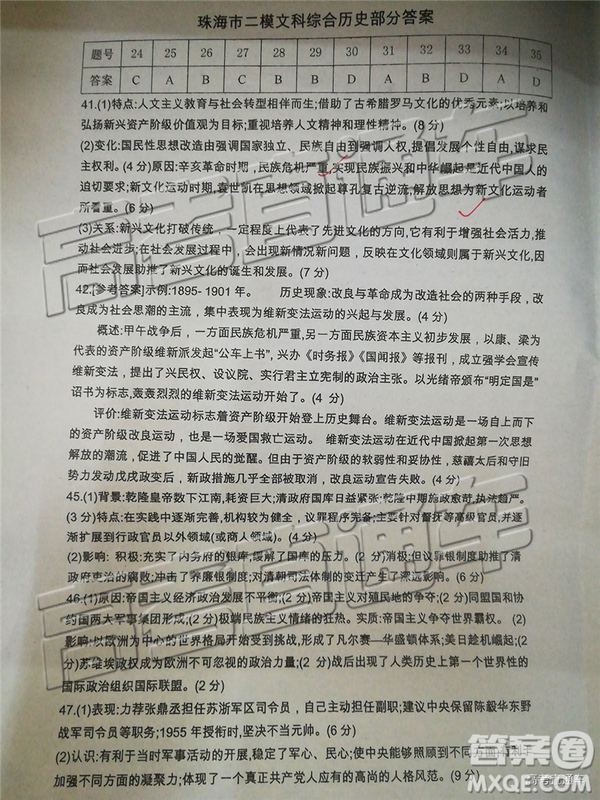 珠海市二模文科综合历史部分答案
题号 24 25 26 27 28 29 30 31 32 33 34 35
答案 C A B C B D D A C D A D
41.(1)特点:人文主义教育与社会转型相伴而生;借助了古希腊罗马文化的优秀元素;以培养和
弘扬新兴资产阶级价值观为目标;重视培养人文精神和理性精神。(8分)
(2)变化:国民性思想改造由强调国家独立、民族自由到强调人权,提倡发展个性自由,谋求民
主权利。(4分)原因:辛亥革命时期,民族危机严重,实现民族振兴和中华崛起是近代中国人的
迫切要求;新文化运动时期,袁世凯在思想领域掀起尊孔复古逆流,解放思想为新文化运动者
所看重。(6分)
(3)关系:新兴文化打破传统,一定程度上代表了先进文化的方向,它有利于增强社会活力,推
动社会进步;在社会发展过程中,会出现新情况新问题,反映在文化领域则属于新兴文化,因
而社会发展助推了新兴文化的诞生和发展。(7分)
42.[参考答案]示例:1895-1901年。 历史现象:改良与革命成为改造社会的两种手段,改
良成为社会思潮的主流,集中表现为维新变法运动的兴起与发展。(4分)
概述:甲午战争后,一方面民族危机严重,另一方面民族资本主义初步发展,以康、梁为
代表的资产阶级维新派发起“公车上书”,兴办《时务报》《国闻报》等报刊,成立强学会宣传
维新变法,提出了兴民权、设议院、实行君主立宪制的政治主张。以光绪帝颁布“明定国是”
诏书为标志,轰轰烈烈的维新变法运动开始了。(4分)
评价:维新变法运动标志着资产阶级开始登上历史舞台。维新变法运动是一场自上而下
的资产阶级改良运动,也是一场爱国救亡运动。 维新变法运动在近代中国掀起第一次思想
解放的潮流,促进了中国人民的觉醒。但由于资产阶级的软弱性和妥协性,慈禧太后和守旧
势力发动戊戌政变后,新政措施几乎全部被取消,改良运动宣告失败。(4分)
45.(1)背景:乾隆皇帝数下江南,耗资巨大;清政府国库日益紧张;乾隆中期施政愈苛,执法趋严。
(3分)特点:在实践中逐渐完善,机构较为健全,议罪程序完备;主要针对督抚等高级官员,并逐
渐扩展到行政官员以外领域(或商人领域)。(4分)
(2)影响: 积极:充实了内务府的银库,缓解了国库的压力。(2分)消极:但议罪银制度助推了清
政府吏治的腐败;冲击了养廉银制度;对清朝司法体制的变迁产生了深远影响。(6分)
46.(1)原因:帝国主义经济政治发展不平衡;(2分)帝国主义对殖民地的争夺;(2分)同盟国和协
约国两大军事集团形成;(2分)极端民族主义情绪的狂热。实质:帝国主义争夺世界霸权。(2)
影响:以欧洲为中心的世界格局开始受到挑战,形成了凡尔赛—华盛顿体系;美日趁机崛起(2
分);苏维埃政权成为欧洲不可忽视的政治力量;(2分)战后出现了人类历史上第一个世界性的
国际政治组织国际联盟。(2分)
47.(1)表现:力荐张鼎丞担任苏浙军区司令员,自己主动担任副职;建议中央保留陈毅华东野
战军司令员等职务;1955年授衔时,坚决不当元帅。(6分)
(2)认识:有利于当时军事活动的开展,稳定了军心、民心;使中央能够照顾到不同方面有利于
加强不同方面的凝聚力;体现了一个真正共产党人应有的高尚的人格风范。(9分)
高考直通车
答案卷
MXQE.COM